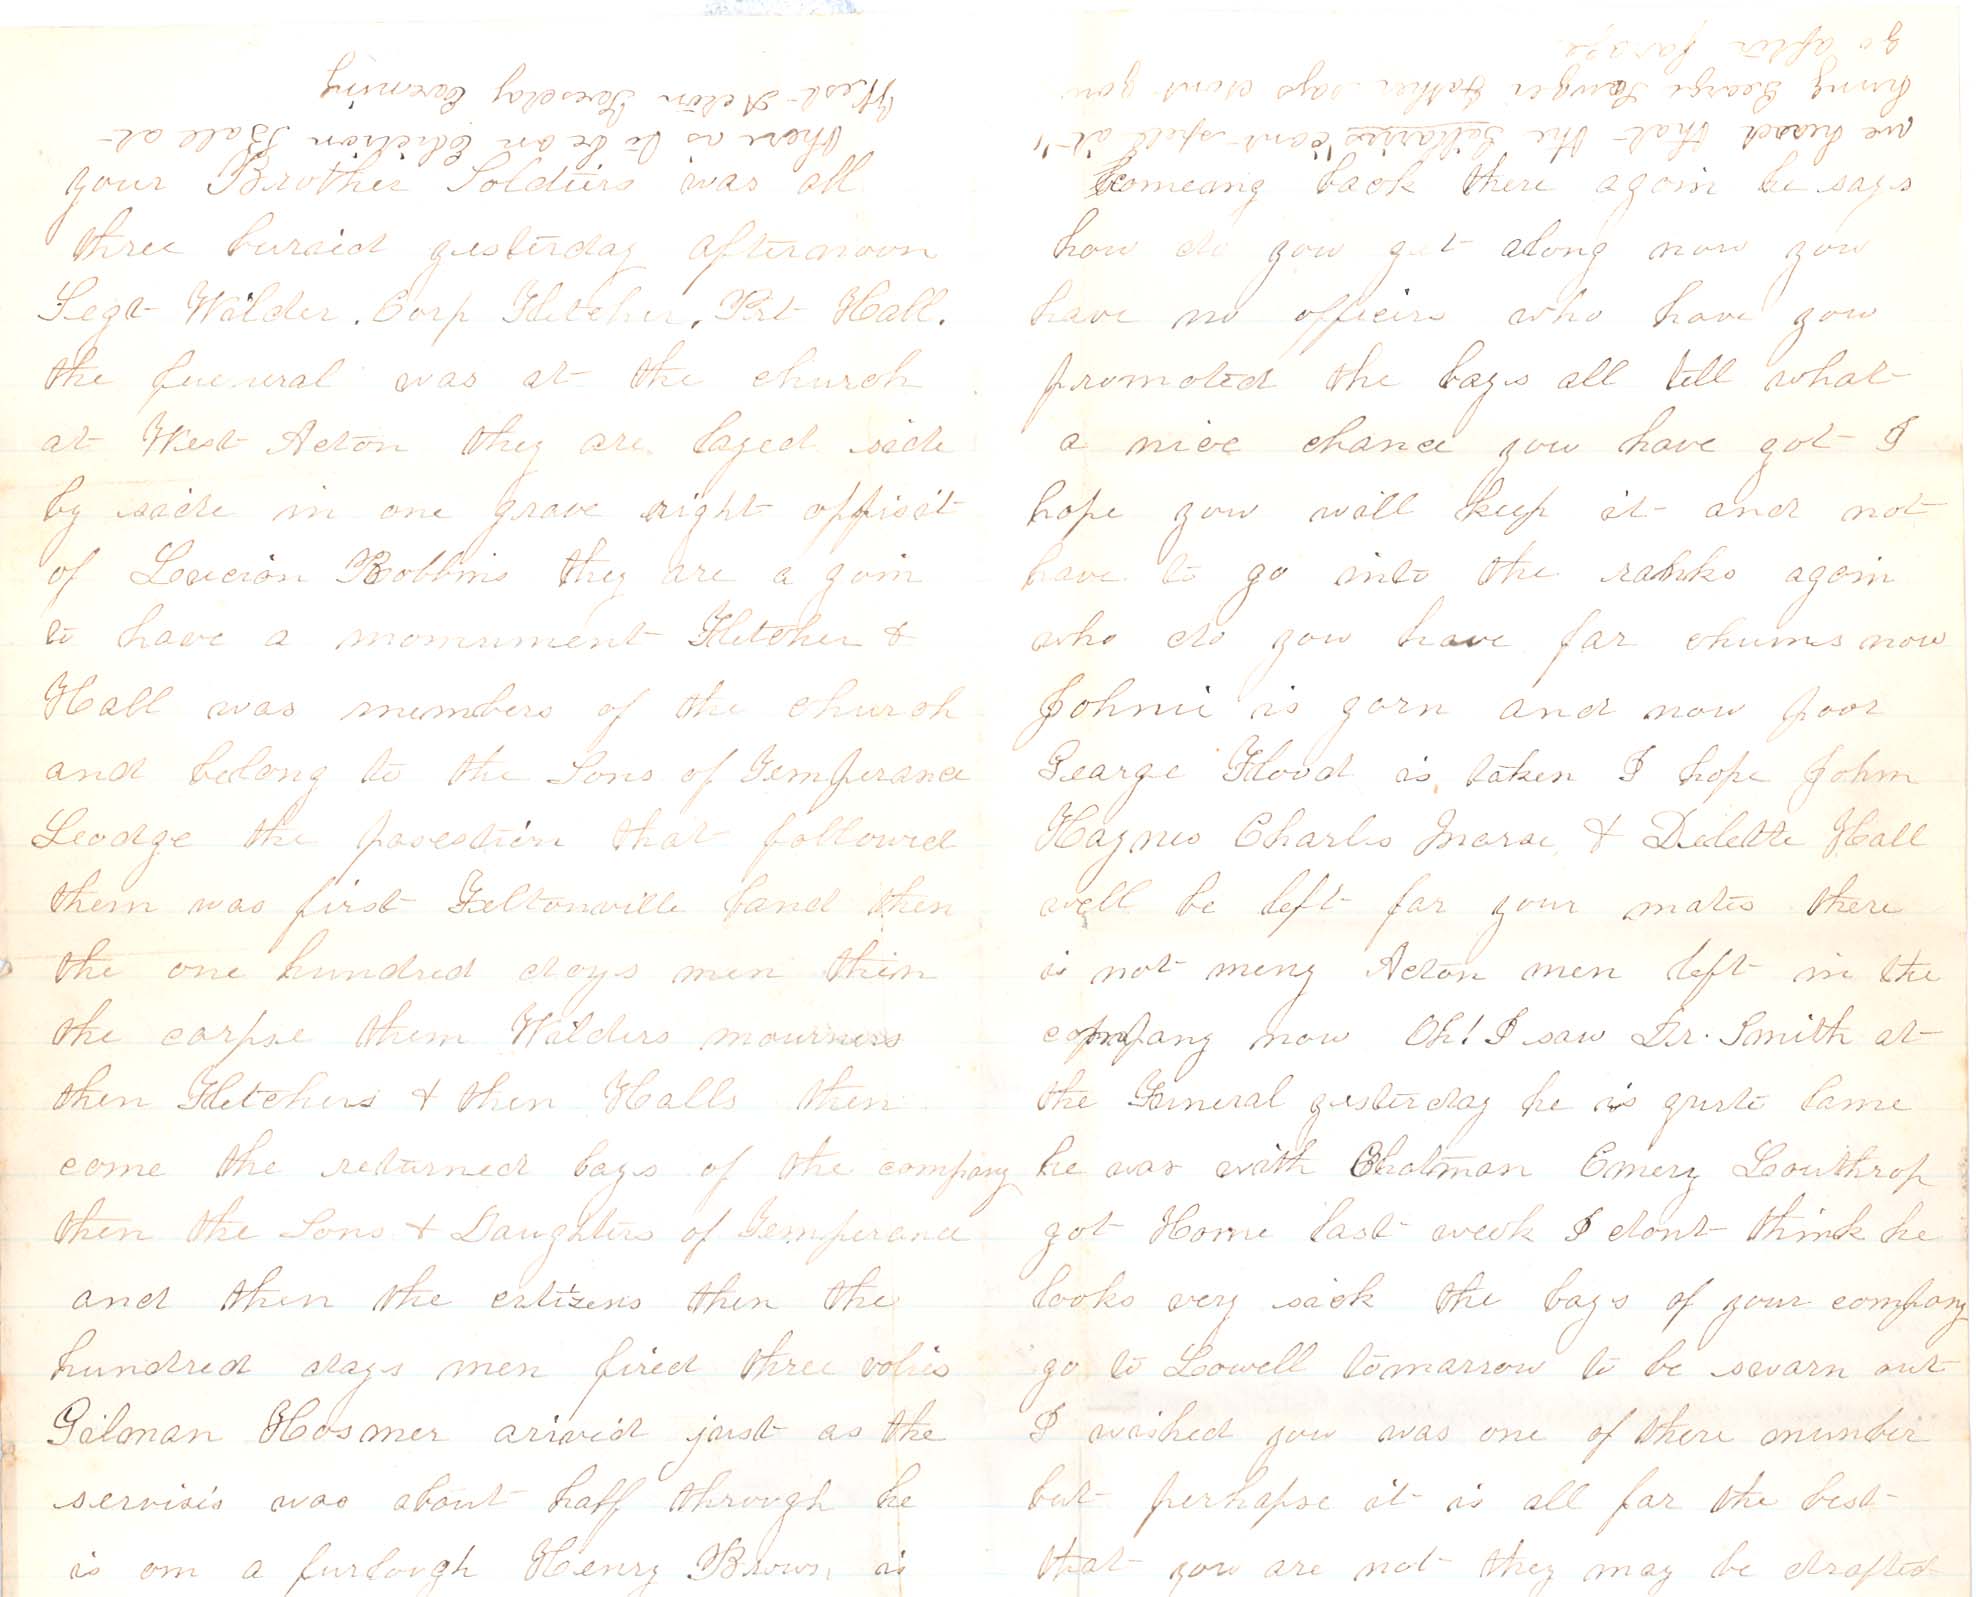 your Brother Soldiers was all
three buraid yesterday afternoon
Segt Wilder. Corp Fletcher. Prt Hall.
the fueneral was at the church
at West Acton they are layed side
by side in one grave right oppisit
of Loucian Robbins they are a goin
to have a momument Fletcher &
Hall was members of the church
and belong to the Sons of Temperance
Leodge the posestion that followed
them was first Feltonville band then
the one hundred days men then
the corpse them Wilders mourners
then Fletchers & then Halls then
come the returned boys of the company
then the Sons & Daughters of Temperance
and then the citizens then the
hundred days men fired three volies
Gilman Hosmer arived just as the
servisis was about half through he
is om a furlough Henry Brown is
there is to be an Eliction Ball at
West Acton Tuesday Evening
Comeang back there again he says
how do you get along now you
have no officers who have you
promoted the boys all tell what
a nice chance you have got I
hope you will keep it and not
have to go into the ranks again
who do you have for chums now
Johnie is gorn and now poor
George Flood is taken I hope John
Haynes Charles Morse & Delette Hall
well be left for your mates there
is not meny Acton men left in the
company now Oh! I saw Dr. Smith at
the Funeral yesterday he is quite lame
he was with Chatman Emery Louthrop
got Home last week I dont think he
looks very sick the boys of your company
go to Lowell tomarrow to be sworn out
I wished you was one of there number
but perhapse it is all for the best
that you are not they may be drafted
we heard that the cont spell it"
hung George Sawyer Father says dont you
go after forage